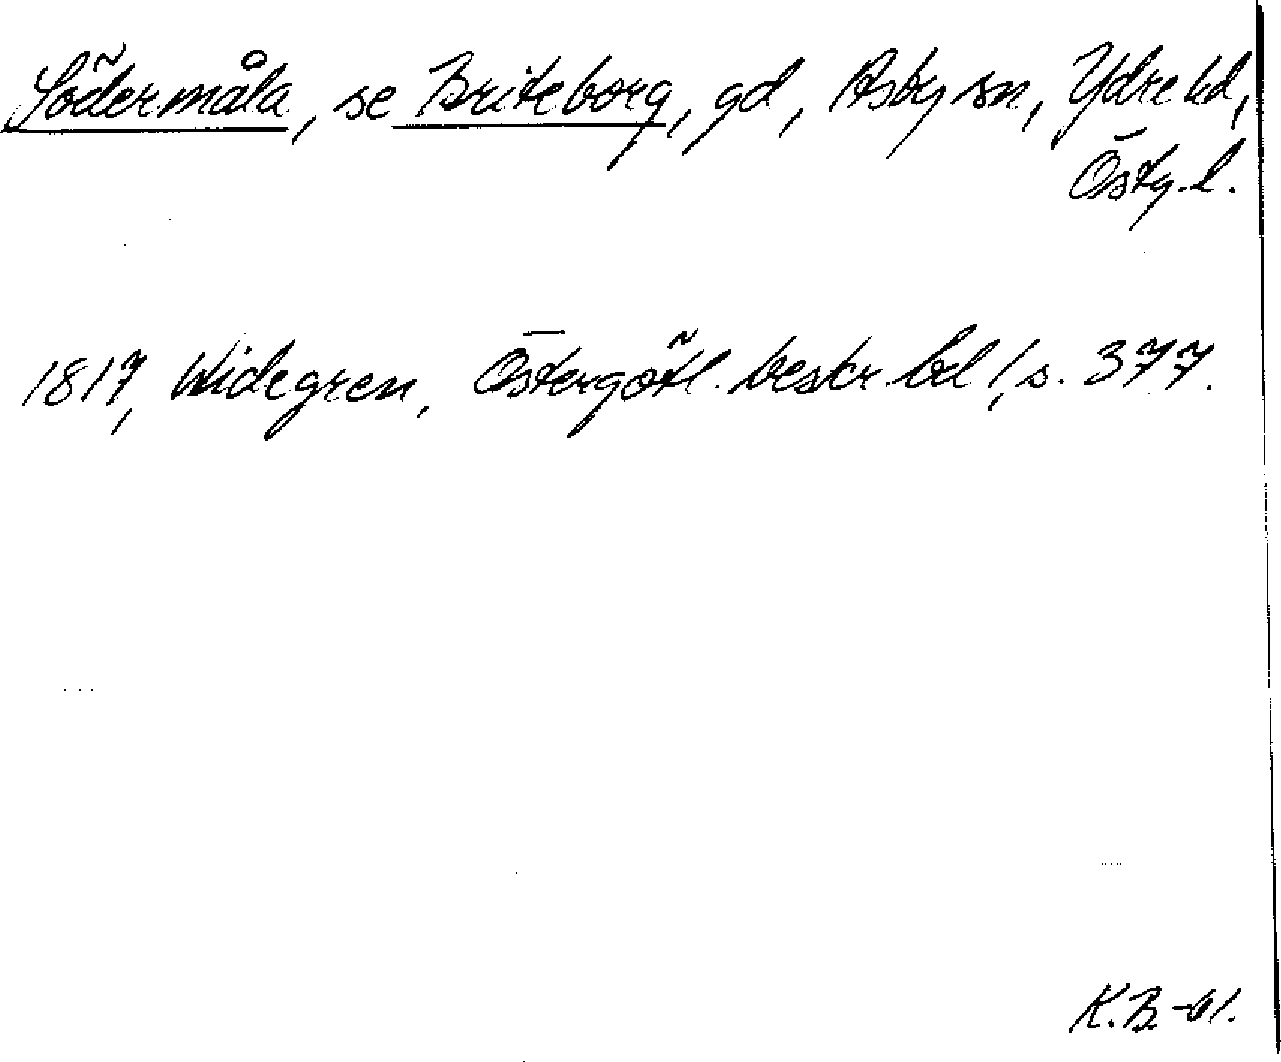 Södermåla, se Briteborg, gd, Asby sn, Ydre hd,
Östg. l.
1817, Widegren, Östergötl. beskr bd 1, s. 377.
K.B. -61.